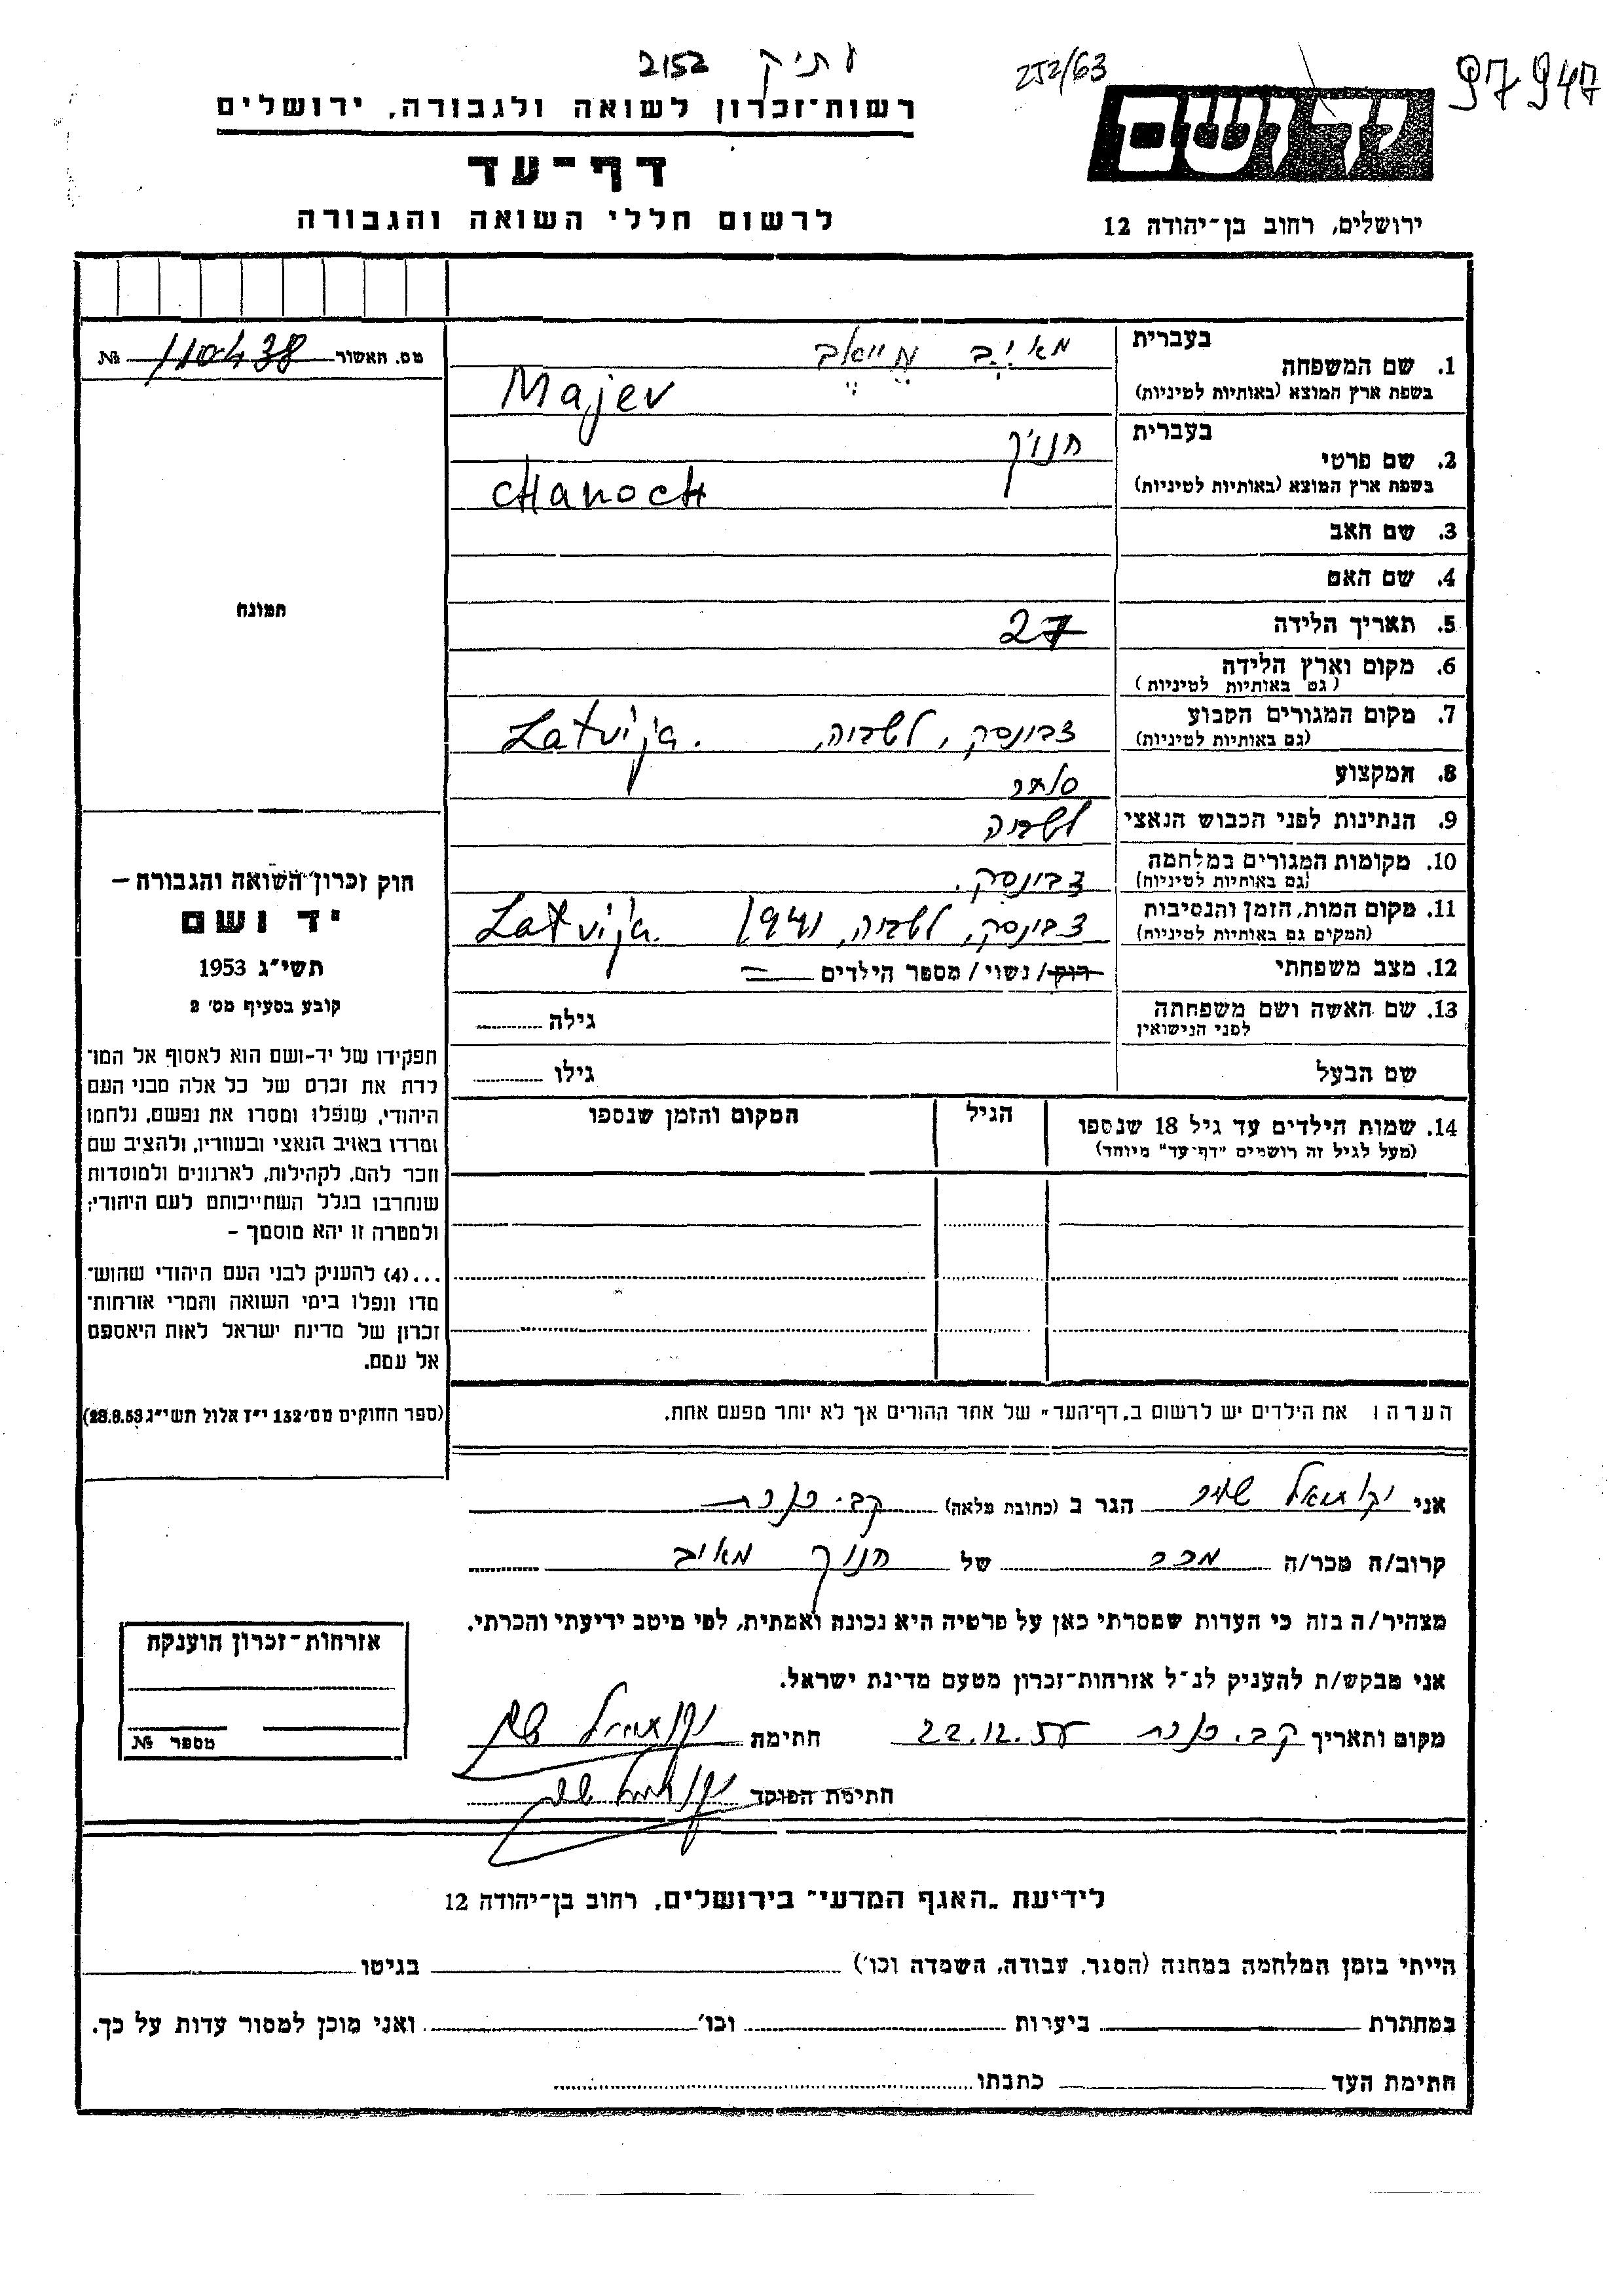 עתיק 2152
252/63
97947
רשות־זכרון לשואה ולגבורה, ירושלים
יד ושם
דף־עד
לרשום חללי השואה והגבורה
ירושלים, רחוב בן־יהודה 12
מס. האשור 110438 №
תמונה
חוק זכרון השואה והגבורה —
יד ושם
תשי״ג 1953
קובע בסעיף מס׳ 2
תפקידו של יד-ושם הוא לאסוף אל המו־
לדת את זכרם של כל אלה מבני העם
היהודי, שנפלו ומסרו את נפשם, נלחמו
ומרדו באויב הנאצי ובעוזריו, ולהציב שם
וזכר להם, לקהילות, לארגונים ולמוסדות
שנחרבו בגלל השתייכותם לעם היהודי;
ולמטרה זו יהא מוסמך —
...(4) להעניק לבני העם היהודי שהוש־
מדו ונפלו בימי השואה והמרי אזרחות־
זכרון של מדינת ישראל לאות היאספם
אל עמם.
(ספר החוקים מס׳ 132 י״ז אלול תשי״ג 28.8.53)
1. שם המשפחה
בעברית מאיב
בשפת ארץ המוצא (באותיות לטיניות) Majev
2. שם פרטי
בעברית חנוך
בשפת ארץ המוצא (באותיות לטיניות) CHANOCH
3. שם האב
4. שם האם
5. תאריך הלידה 27
6. מקום וארץ הלידה
(גם באותיות לטיניות)
7. מקום המגורים הקבוע דבינסק, לטביה, Latvija.
(גם באותיות לטיניות)
8. המקצוע סוחר
9. הנתינות לפני הכבוש הנאצי לטביה
10. מקומות המגורים במלחמה דבינסק,
(גם באותיות לטיניות)
11. מקום המות, הזמן והנסיבות דבינסק, לטביה, 1941 Latvija.
(המקום גם באותיות לטיניות)
12. מצב משפחתי רוק/ נשוי/ מספר הילדים
13. שם האשה ושם משפחתה גילה
לפני הנישואין
שם הבעל גילו
14. שמות הילדים עד גיל 18 שנספו הגיל המקום והזמן שנספו
(מעל לגיל זה רושמים "דף־עד" מיוחד)
הערה: את הילדים יש לרשום ב„דף־העד״ של אחד ההורים אך לא יותר מפעם אחת.
אני יקותיאל הגר ב (כתובת מלאה) קב. כנרת
קרוב/ה מכר/ה מכר של חנוך מאיב
מצהיר/ה בזה כי העדות שמסרתי כאן על פרטיה היא נכונה ואמתית, לפי מיטב ידיעתי והכרתי.
אני מבקש/ת להעניק לנ״ל אזרחות־זכרון מטעם מדינת ישראל.
מקום ותאריך קב. כנרת 22.12.55 חתימת
חתימת הפוקד
אזרחות־זכרון הוענקה
מספר №
לידיעת „האגף המדעי״ בירושלים, רחוב בן־יהודה 12
הייתי בזמן המלחמה במחנה (הסגר, עבודה, השמדה וכו׳) בגיטו
במחתרת ביערות וכו׳ ואני מוכן למסור עדות על כך.
חתימת העד כתבתו